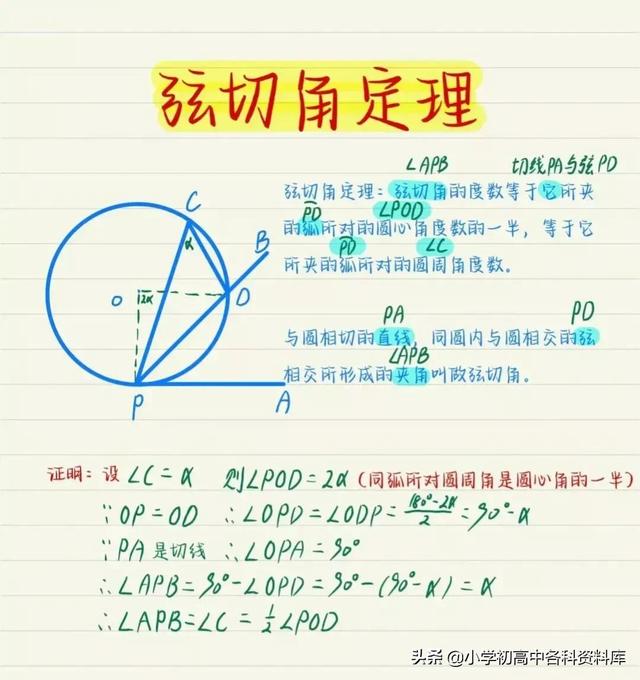 弦切角定理
∠APB 切线PA与弦PD
弦切角定理：弦切角的度数等于它所夹
PD ∠POD
的弧所对的圆心角度数的一半，等于它
PD ∠C
所夹的弧所对的圆周角度数。
PA PD
与圆相切的直线，同圆内与圆相交的弦
∠APB
相交所形成的夹角叫做弦切角。
C
α
B
O 2α D
P A
证明：设∠C=α 则∠POD=2α（同弧所对圆周角是圆心角的一半）
∵OP=OD ∴∠OPD=∠ODP=(180°-2α)/2=90°-α
∵PA是切线 ∴∠OPA=90°
∴∠APB=90°-∠OPD=90°-(90°-α)=α
∴∠APB=∠C=1/2∠POD
头条 @小学初高中各科资料库